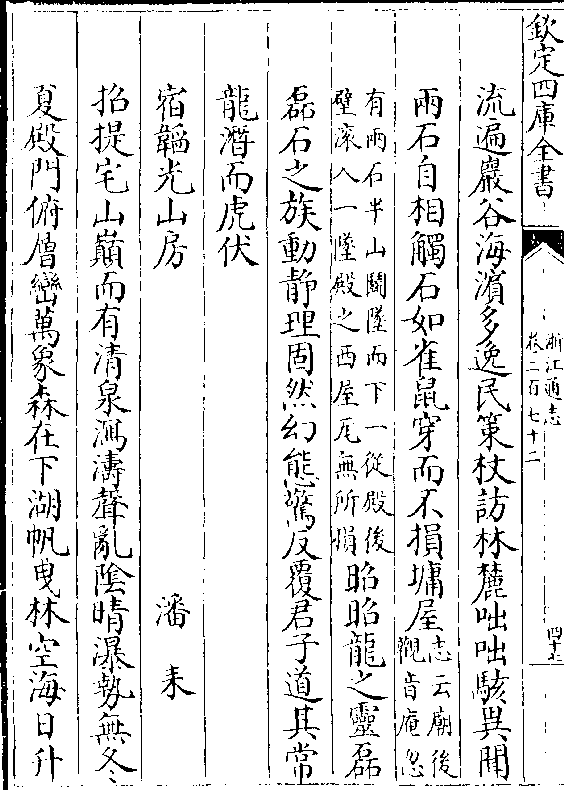 欽定四庫全書
浙江通志
卷二百七十二
四十七
流遍巖谷海濱多逸民策杖訪林麓咄咄駭異聞
兩石自相觸石如雀鼠穿而不損墉屋
志云廟後
觀音庵忽
有兩石半山鬭墜而下一從殿後
壁滚入一墜殿之西屋瓦無所損
昭昭龍之靈磊
磊石之族動静理固然幻態驚反覆君子道其常
龍潛而虎伏
宿韜光山房
潘耒
招提宅山巔而有清泉瀉濤聲亂陰晴瀑勢無冬
夏殿門俯僧巒萬象森在下湖帆曳林空海日升